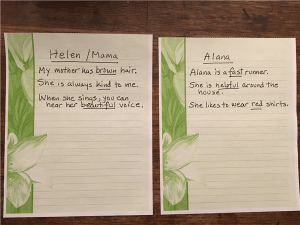 Helen / Mama
My mother has brown hair.
She is always kind to me.
When she sings, you can
hear her beautiful voice.
Alana
Alana is a fast runner.
She is helpful around the
house.
She likes to wear red shirts.